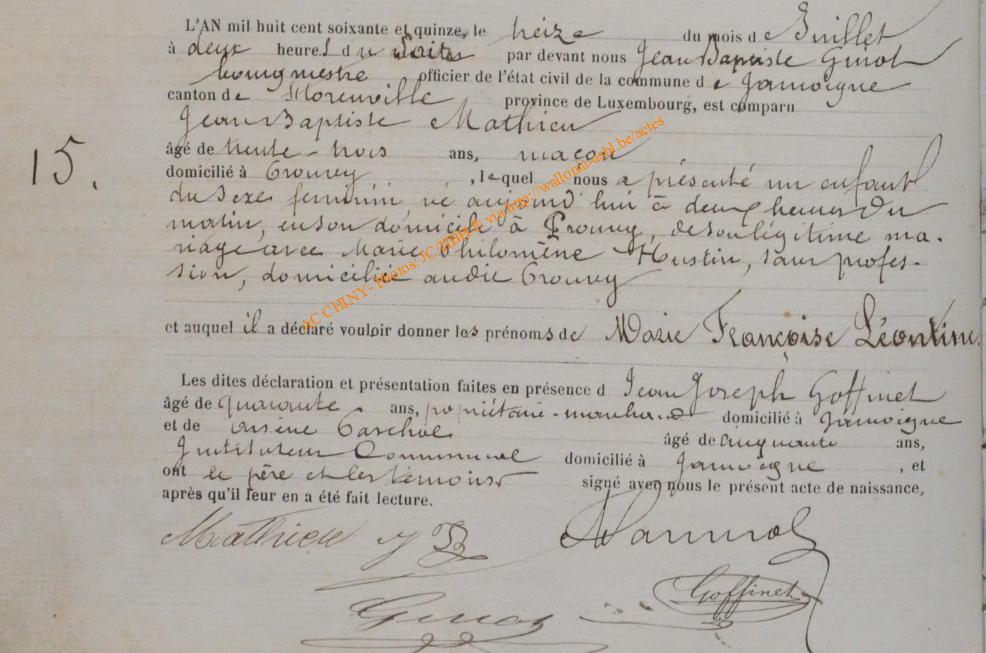 L'AN mil huit cent soixante et quinze, le treize du mois de Juillet
à deux heures du Soir par devant nous Jean Baptiste Ginot
bourgmestre officier de l'état civil de la commune de Jamoigne
canton de Florenville province de Luxembourg, est comparu
Jean Baptiste Mathieu
âgé de trente-trois ans, maçon
15. domicilié à Prouvy, lequel nous a présenté un enfant
du sexe féminin né aujourd'hui à deux heures du
matin, en son domicile à Prouvy, de son légitime ma-
riage avec Marie Philomène Hustin, sans profes-
sion, domiciliée audit Prouvy
et auquel il a déclaré vouloir donner les prénoms de Marie Françoise Léontine.
Les dites déclaration et présentation faites en présence d Jean Joseph Goffinet
âgé de quarante ans, propriétaire-marchand domicilié à Jamoigne
et de Arsène âgé de cinquante ans,
Instituteur Communal domicilié à Jamoigne, et
ont le père et les témoins signé avec nous le présent acte de naissance,
après qu'il leur en a été fait lecture.
Mathieu J B
Goffinet
Ginot
AC CHINY - Photos JC via http://wallonia-asbl.be/actes